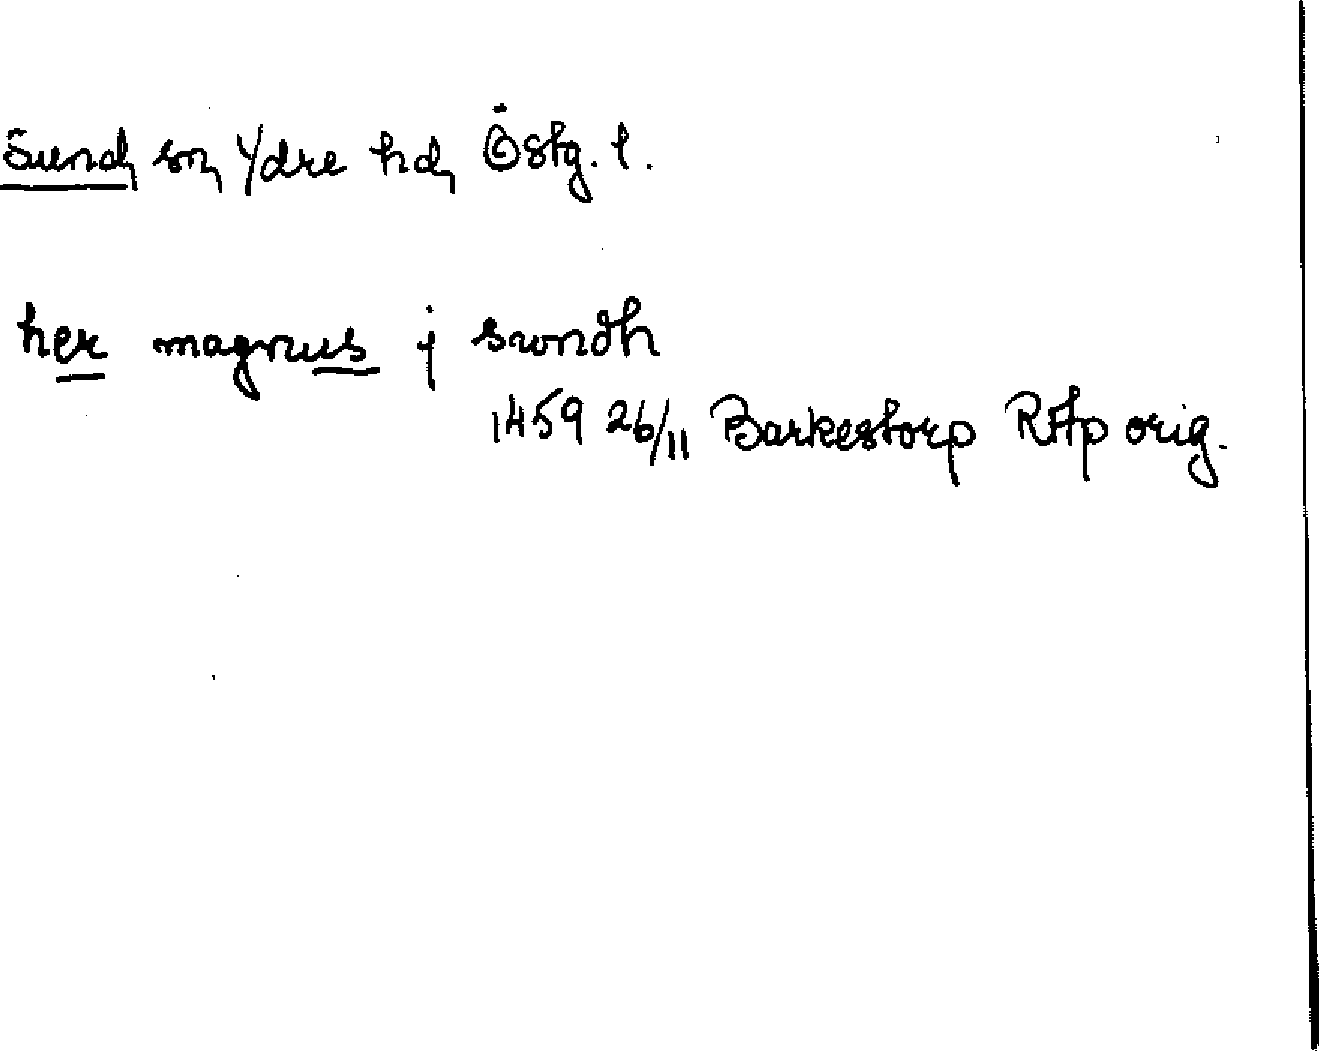 Sund, sn, Ydre hd, Östg. l.
her magnus j swndh
1459 26/11 Barkestorp RAp orig.